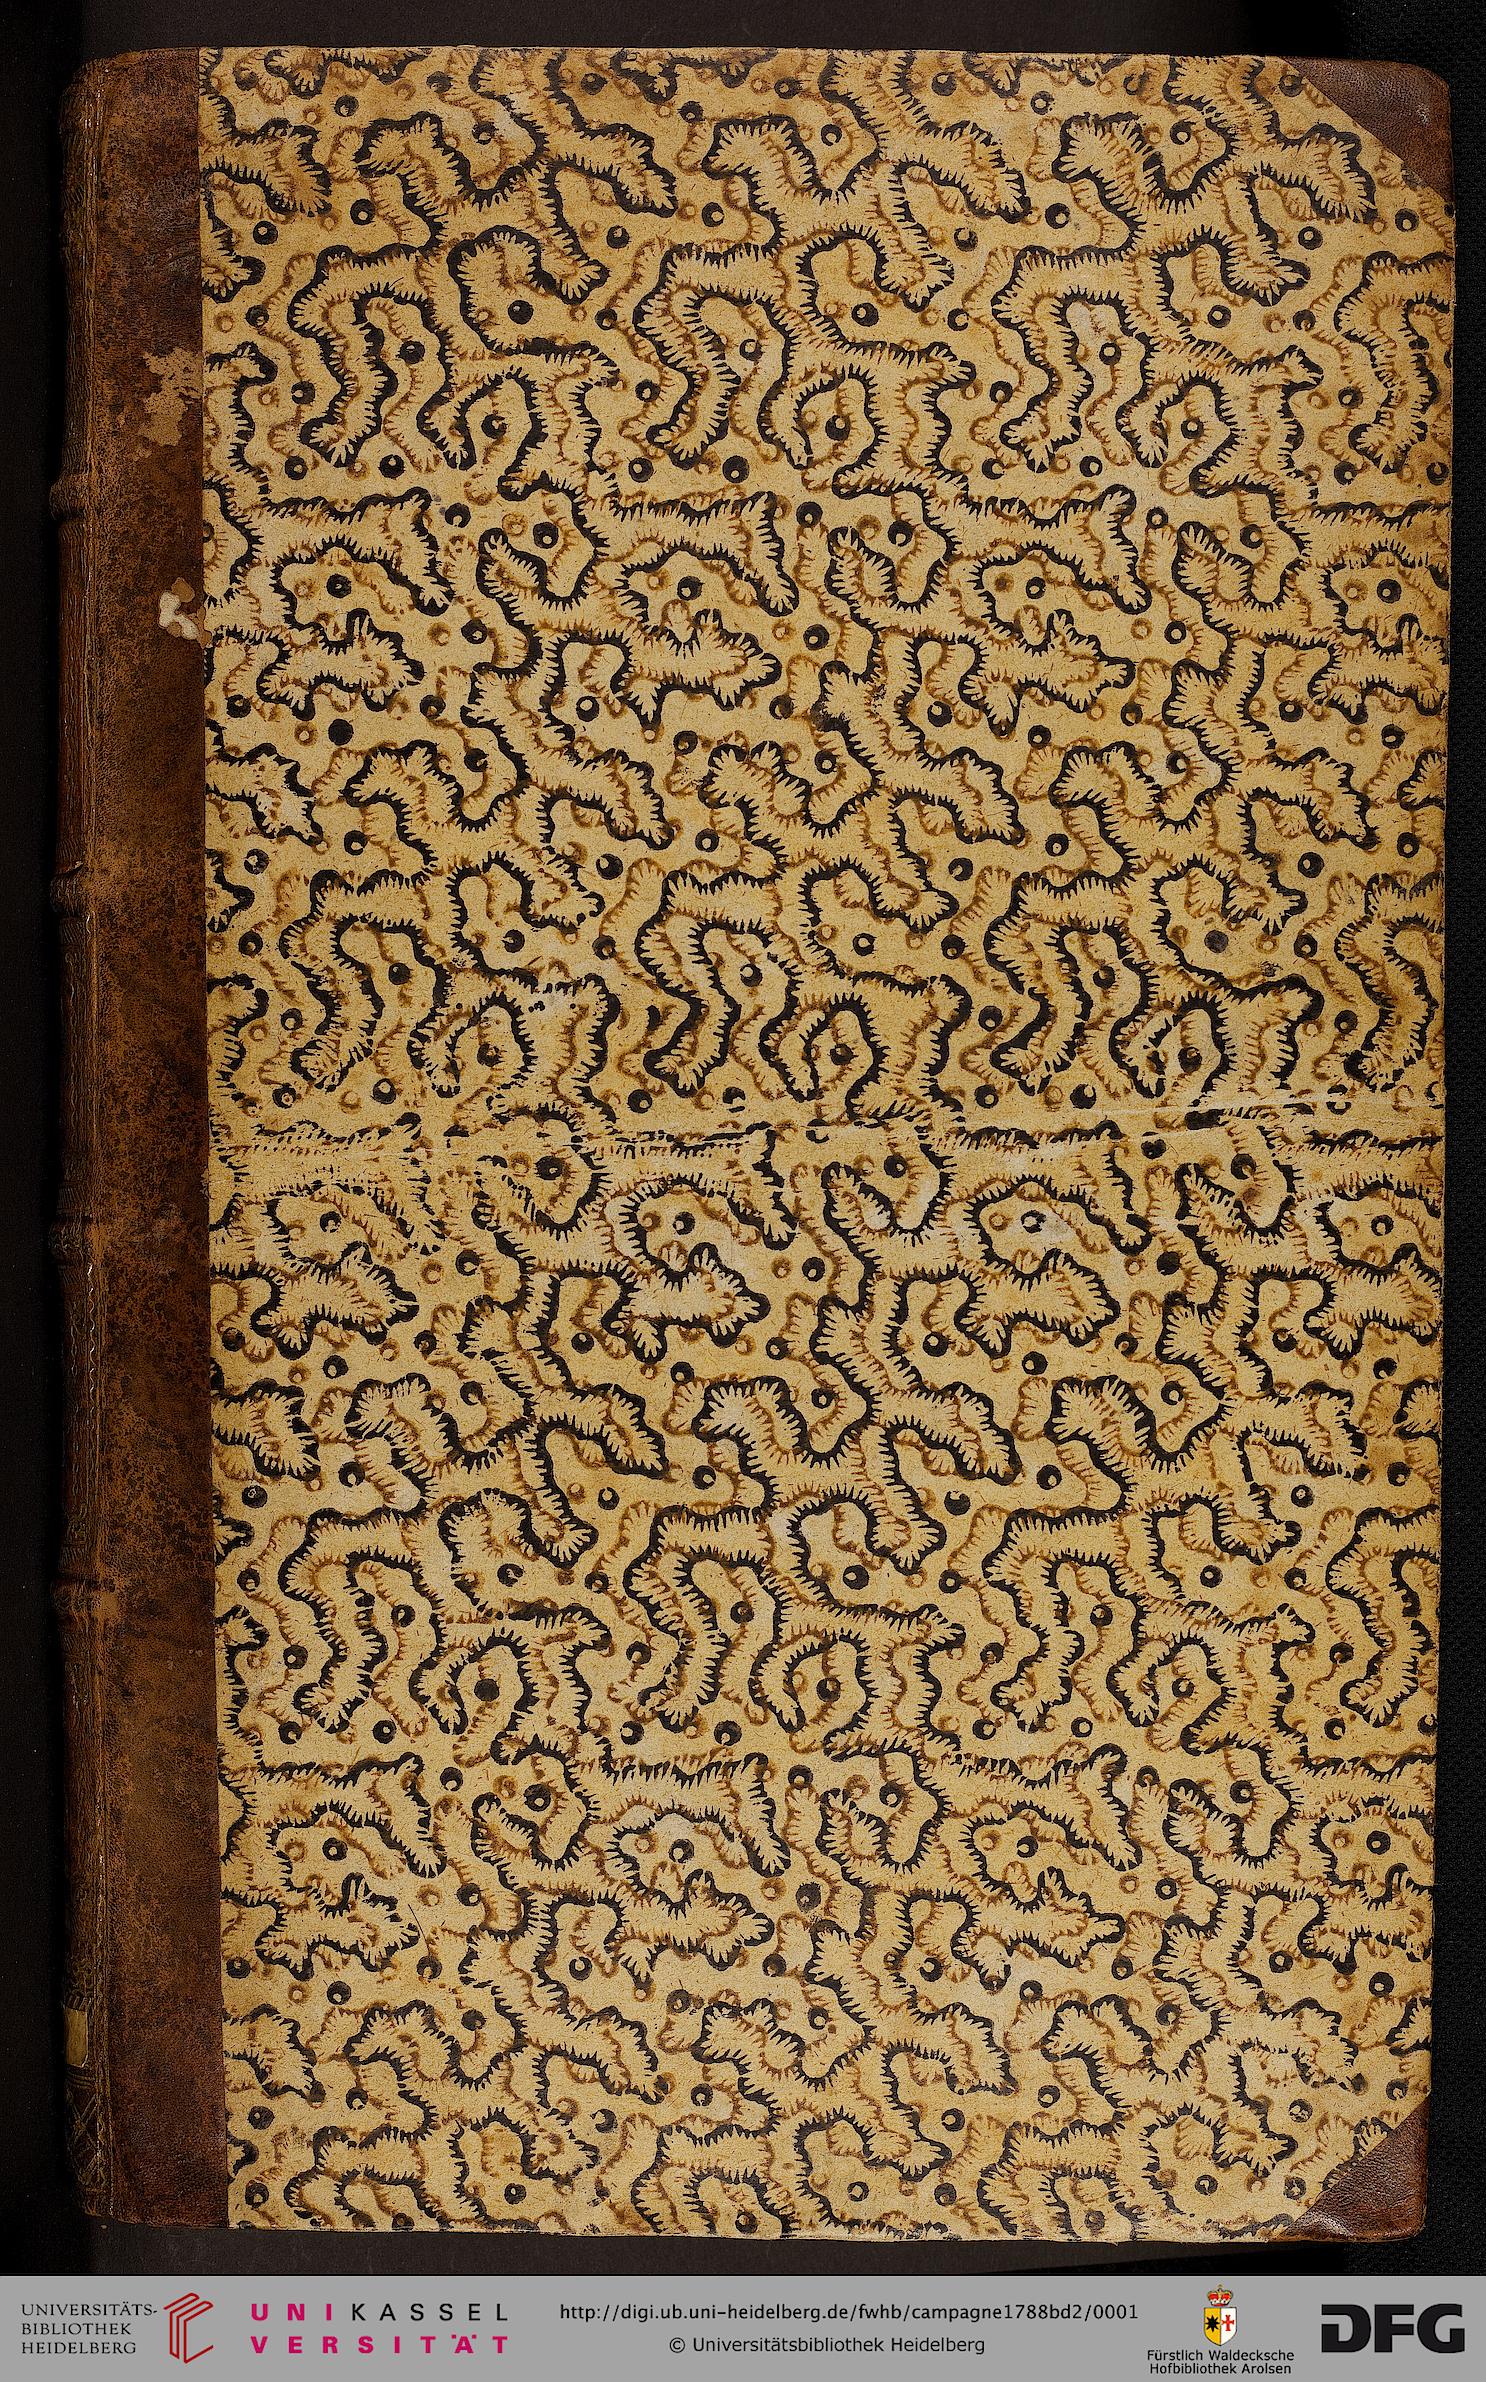 UNIVERSITÄTS-
BIBLIOTHEK
HEIDELBERG
UNIKASSEL
VERSITÄT
http://digi.ub.uni-heidelberg.de/fwhb/campagne1788bd2/0001
© Universitätsbibliothek Heidelberg
Fürstlich Waldecksche
Hofbibliothek Arolsen
DFG